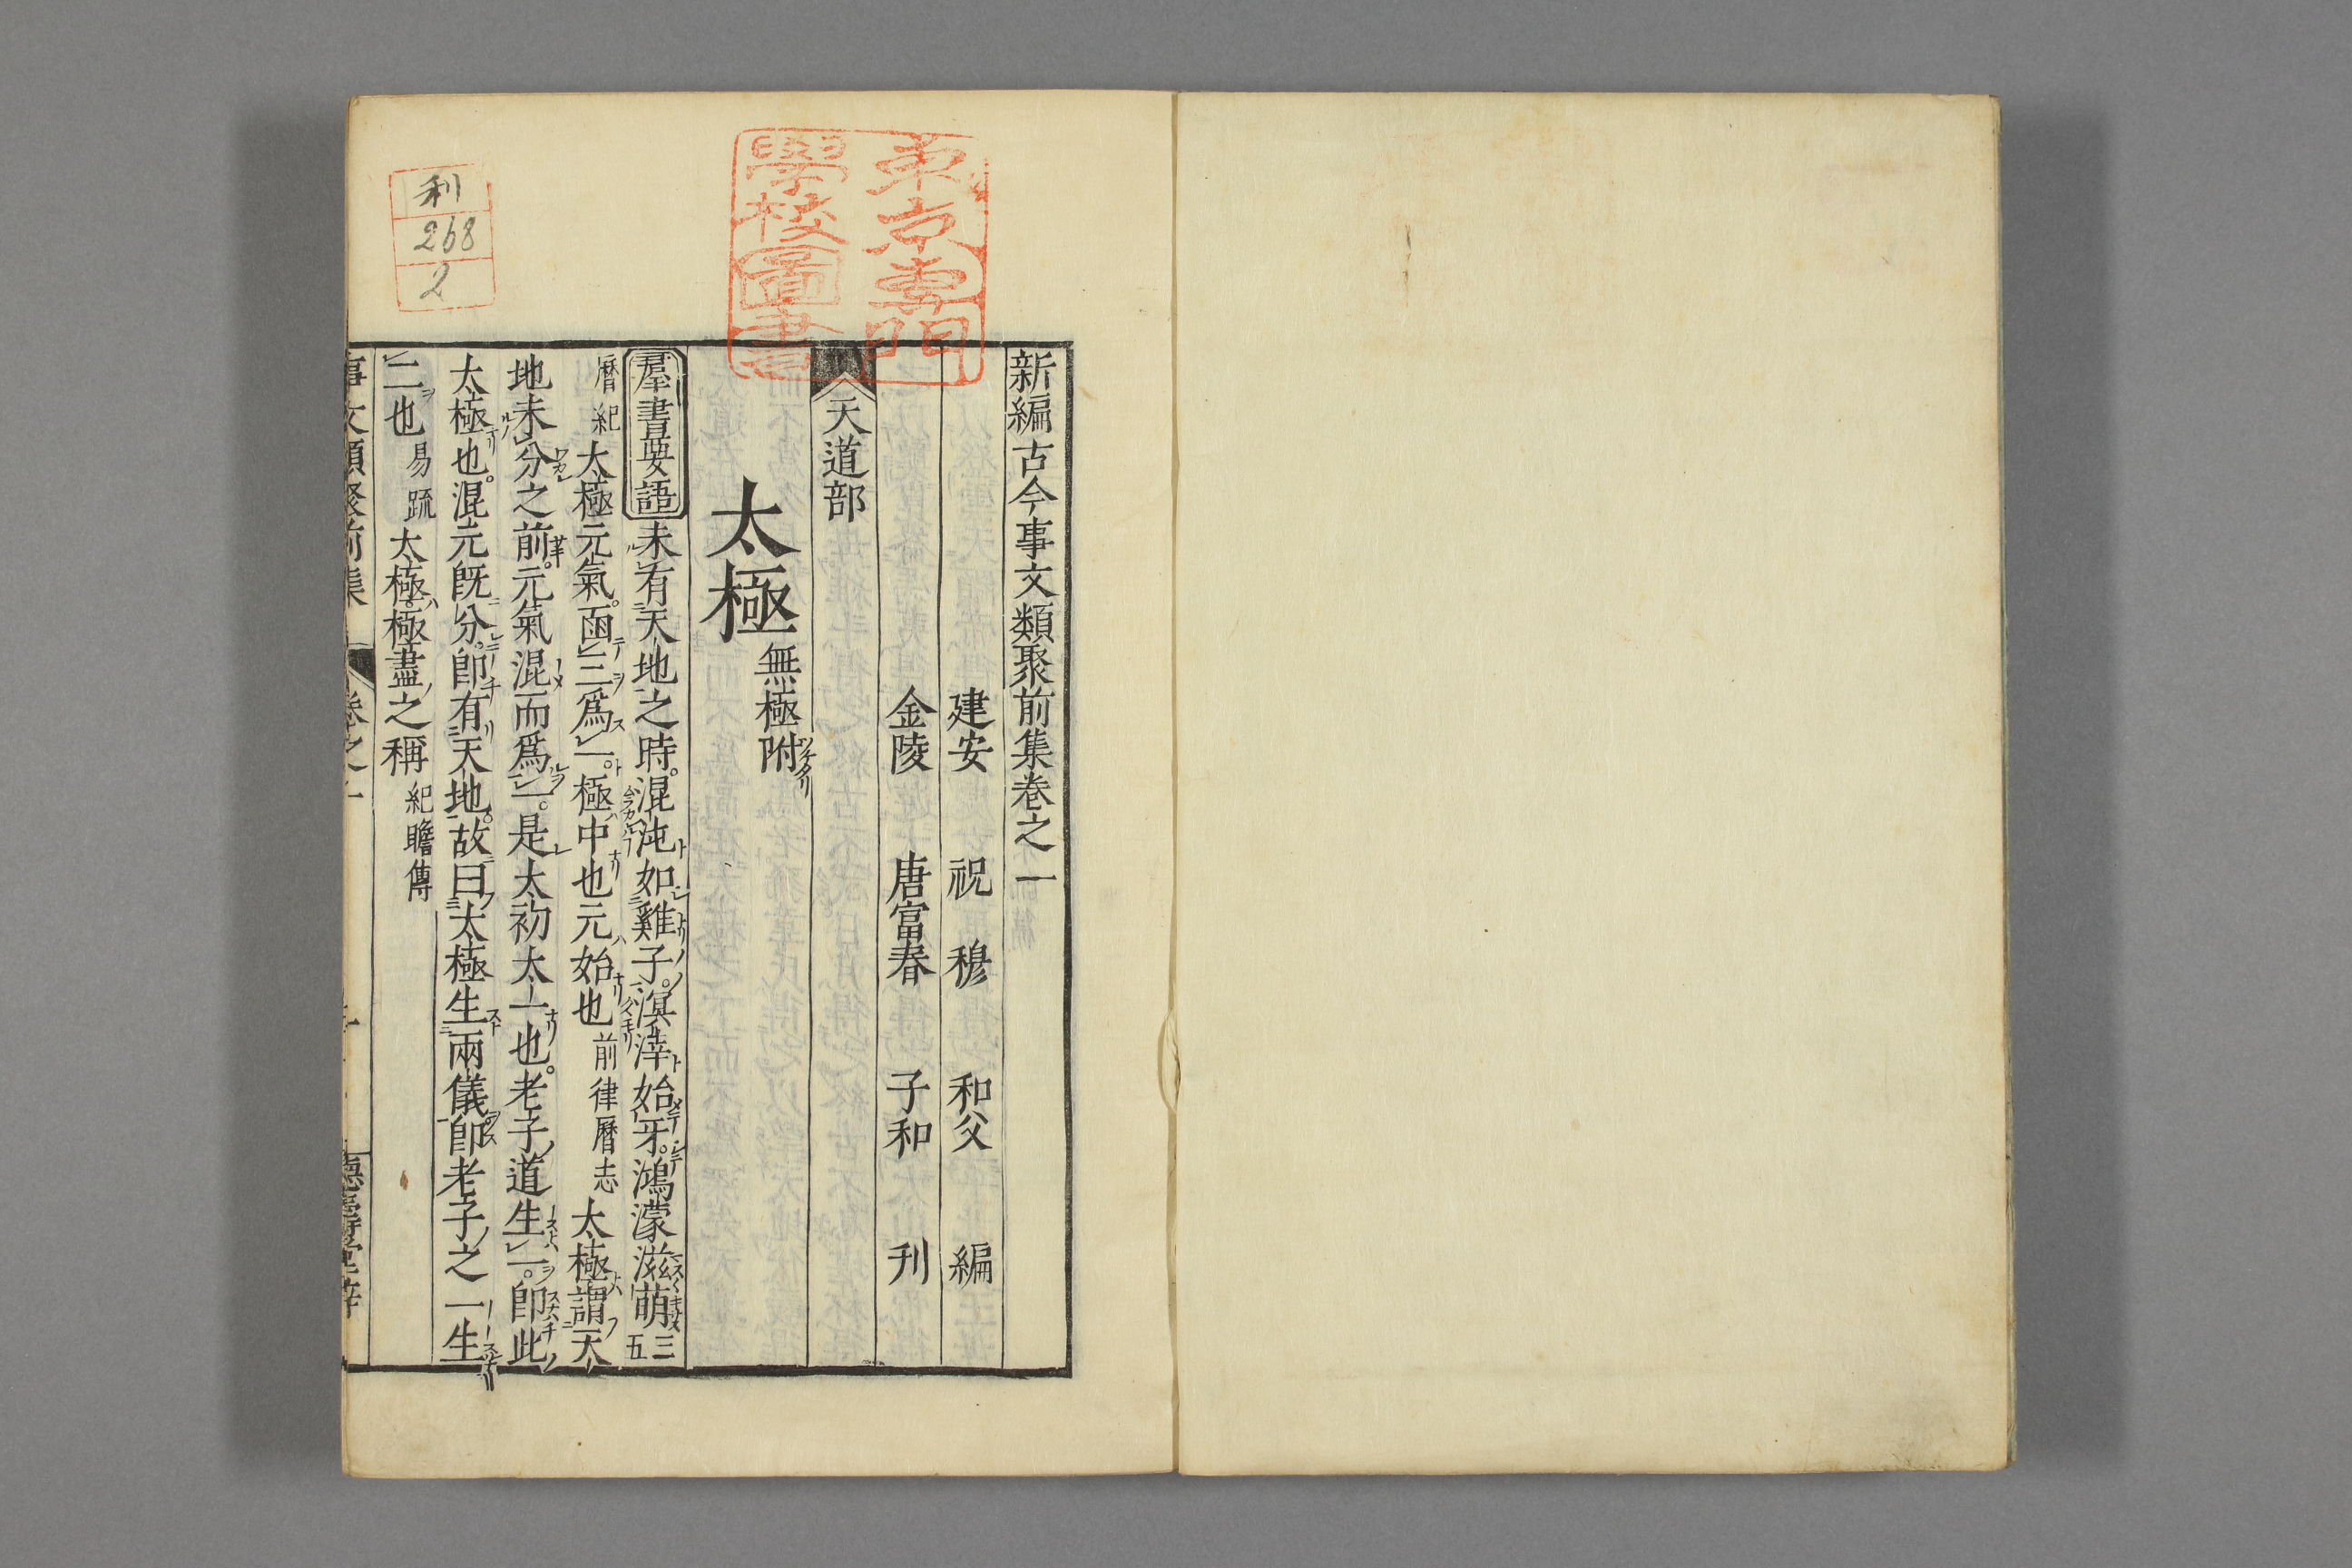 新編古今事文類聚前集卷之一
建安 祝 穆 和父 編
金陵 唐富春 子和 刊
天道部
太極 無極附
羣書要語 未有天地之時。混沌如雞子。溟涬始牙。鴻濛滋萌 三五
曆紀 太極元氣。函三爲一。極中也元始也 前律曆志 太極謂天
地未分之前。元氣混而爲一。是太初太一也。老子道生一。卽此
太極也。混元旣分。卽有天地。故曰太極生兩儀卽老子之一生
二也 易疏 太極。極盡之稱 紀瞻傳
事文類聚前集 卷之一
東京專門
學校圖書
利
268
2